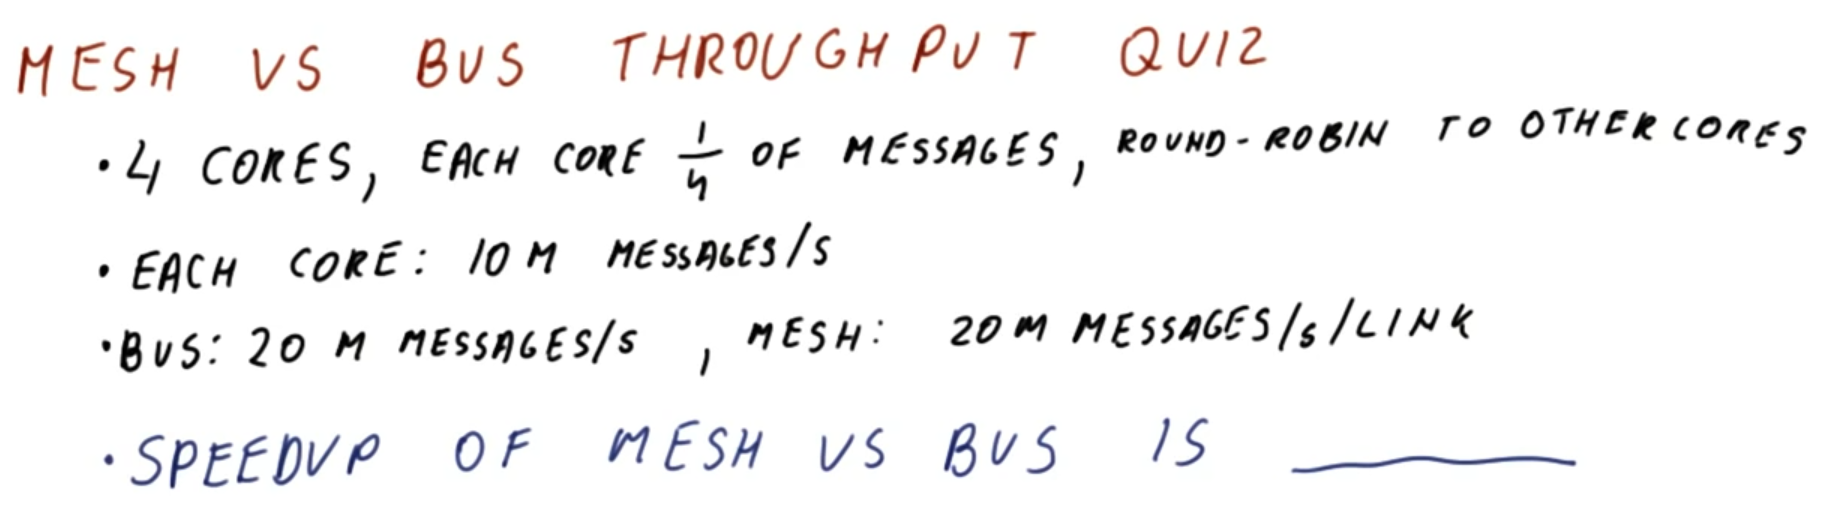 MESH VS BUS THROUGHPUT QUIZ
• 4 CORES, EACH CORE 1/4 OF MESSAGES, ROUND-ROBIN TO OTHER CORES
• EACH CORE: 10 M MESSAGES/S
• BUS: 20 M MESSAGES/S , MESH: 20 M MESSAGES/S/LINK
• SPEEDUP OF MESH VS BUS IS ______